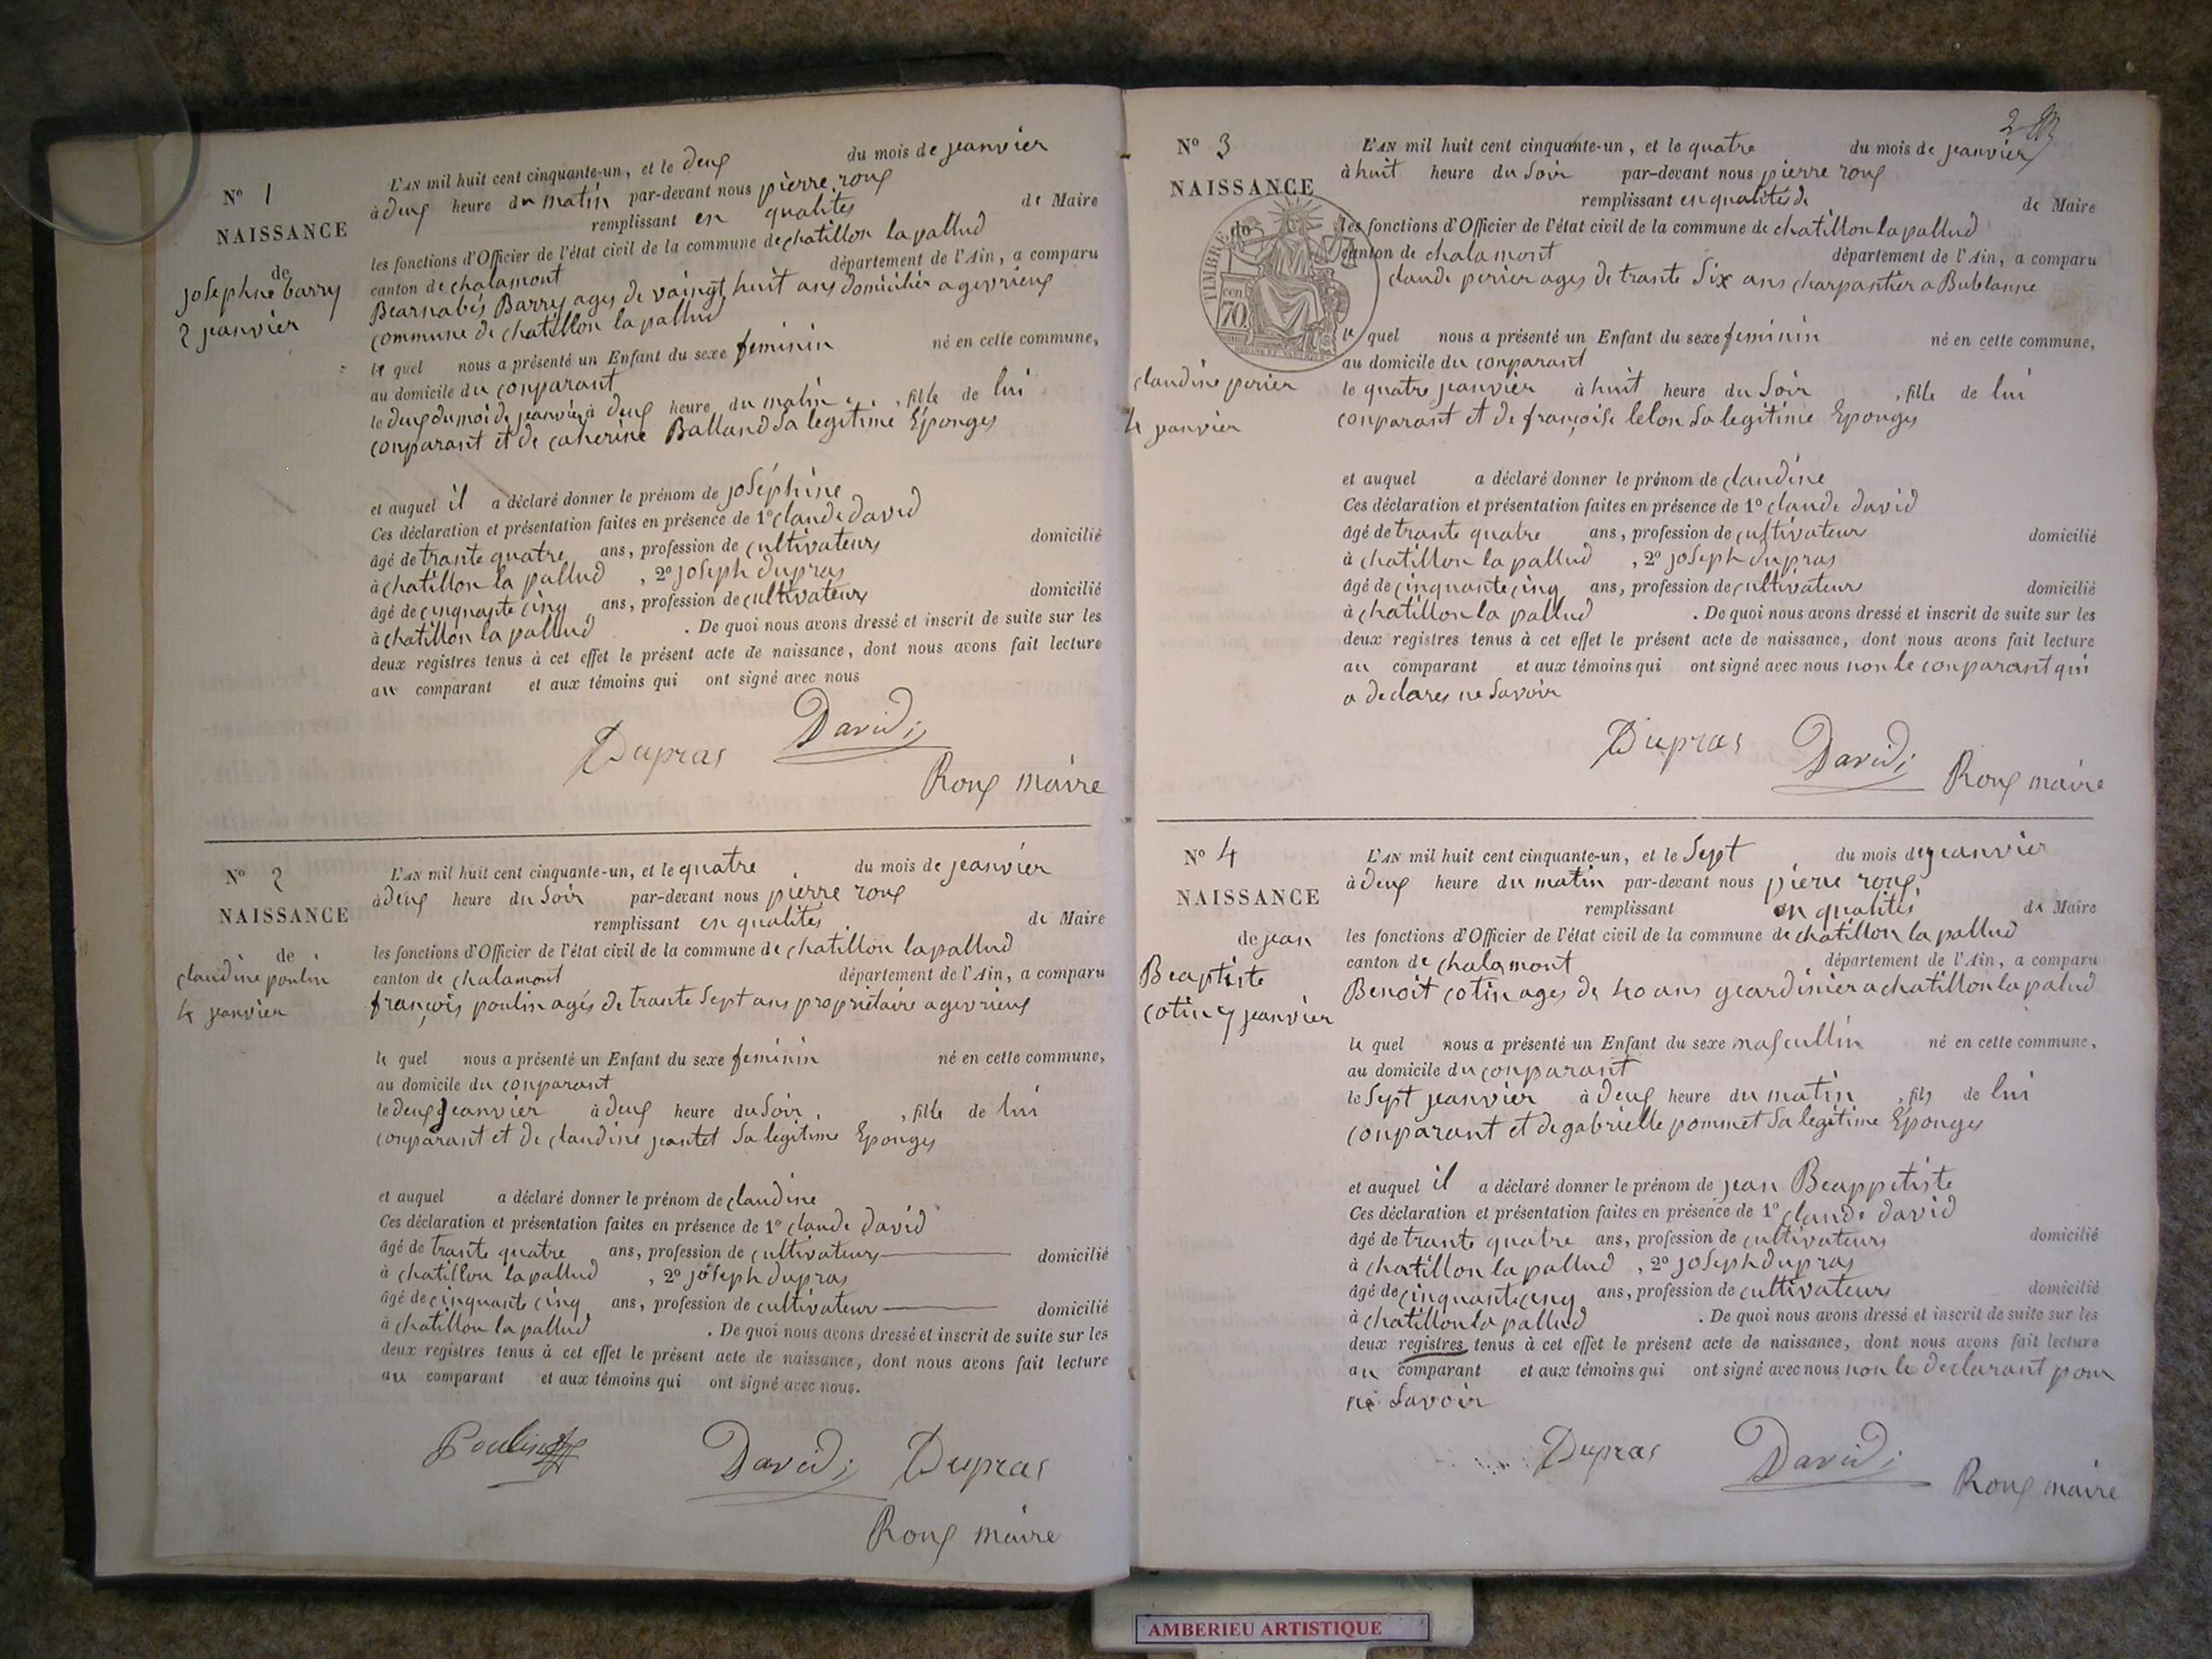 N° 1
NAISSANCE
de
josephne barry
2 jeanvier
L'AN mil huit cent cinquante-un, et le deux du mois de jeanvier
à deux heure du matin par-devant nous pierre roux
remplissant en qualités de Maire
les fonctions d'Officier de l'état civil de la commune de chatillon la pallud
canton de chalamont département de l'Ain, a comparu
Bearnabés Barry ages de vaingt huit ans domicilier a gevrieux
commune de chatillon la pallud
le quel nous a présenté un Enfant du sexe feminin né en cette commune,
au domicile du conparant
le deux du moi de jeanvier à deux heure du matin , fille de lui
conparant et de caherine Balland sa legitime Eponges
et auquel il a déclaré donner le prénom de joséphine
Ces déclaration et présentation faites en présence de 1° claude david
âgé de trante quatre ans, profession de cultivateurs domicilié
à chatillon la pallud , 2° joseph dupras
âgé de cinquante cinq ans, profession de cultivateurs domicilié
à chatillon la pallud . De quoi nous avons dressé et inscrit de suite sur les
deux registres tenus à cet effet le présent acte de naissance, dont nous avons fait lecture
au comparant et aux témoins qui ont signé avec nous
Dupras David
Roux maire
N° 2
NAISSANCE
de
claudine poulin
4 jeanvier
L'AN mil huit cent cinquante-un, et le quatre du mois de jeanvier
à deux heure du soir par-devant nous pierre roux
remplissant en qualités de Maire
les fonctions d'Officier de l'état civil de la commune de chatillon la pallud
canton de chalamont département de l'Ain, a comparu
françois poulin agés de trante sept ans propriétaire a gevrieux
le quel nous a présenté un Enfant du sexe feminin né en cette commune,
au domicile du conparant
le deux jeanvier à deux heure du soir , fille de lui
conparant et de claudine jantet sa legitime Eponges
et auquel a déclaré donner le prénom de claudine
Ces déclaration et présentation faites en présence de 1° claude david
âgé de trante quatre ans, profession de cultivateurs domicilié
à chatillon la pallud , 2° joseph dupras
âgé de cinquante cinq ans, profession de cultivateur domicilié
à chatillon la pallud . De quoi nous avons dressé et inscrit de suite sur les
deux registres tenus à cet effet le présent acte de naissance, dont nous avons fait lecture
au comparant et aux témoins qui ont signé avec nous.
Poulin David Dupras
Roux maire
2
N° 3
NAISSANCE
de
TIMBRE
cen 70
claudine perier
4 jeanvier
L'AN mil huit cent cinquante-un, et le quatre du mois de jeanvier
à huit heure du soir par-devant nous pierre roux
remplissant en qualités de de Maire
les fonctions d'Officier de l'état civil de la commune de chatillon la pallud
canton de chalamont département de l'Ain, a comparu
claude perier ages de trante six ans charpantier a Bublanne
le quel nous a présenté un Enfant du sexe feminin né en cette commune,
au domicile du conparant
le quatre jeanvier à huit heure du soir , fille de lui
conparant et de françoise lelon sa legitime Eponges
et auquel a déclaré donner le prénom de claudine
Ces déclaration et présentation faites en présence de 1° claude david
âgé de trante quatre ans, profession de cultivateur domicilié
à chatillon la pallud , 2° joseph dupras
âgé de cinquante cinq ans, profession de cultivateur domicilié
à chatillon la pallud . De quoi nous avons dressé et inscrit de suite sur les
deux registres tenus à cet effet le présent acte de naissance, dont nous avons fait lecture
au comparant et aux témoins qui ont signé avec nous non le conparant qui
a declares ne savoir
Dupras David Roux maire
N° 4
NAISSANCE
de jean
Beaptiste
cotin 7 jeanvier
L'AN mil huit cent cinquante-un, et le sept du mois de jeanvier
à deux heure du matin par-devant nous pierre roux
remplissant en qualités de Maire
les fonctions d'Officier de l'état civil de la commune de chatillon la pallud
canton de chalamont département de l'Ain, a comparu
Benoit cotin ages de 40 ans geardinier a chatillon la palud
le quel nous a présenté un Enfant du sexe mascullin né en cette commune,
au domicile du conparant
le sept jeanvier à deux heure du matin , fils de lui
conparant et de gabrielle pommet sa legitime Eponges
et auquel il a déclaré donner le prénom de jean Beapptiste
Ces déclaration et présentation faites en présence de 1° claude david
âgé de trante quatre ans, profession de cultivateurs domicilié
à chatillon la pallud , 2° joseph dupras
âgé de cinquante cinq ans, profession de cultivateurs domicilié
à chatillon la pallud . De quoi nous avons dressé et inscrit de suite sur les
deux registres tenus à cet effet le présent acte de naissance, dont nous avons fait lecture
au comparant et aux témoins qui ont signé avec nous non le declarant pour
ne savoir
Dupras David Roux maire
AMBERIEU ARTISTIQUE